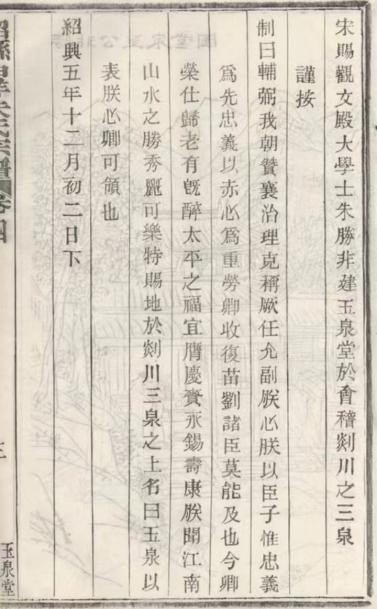 宋賜觀文殿大學士朱勝非建玉泉堂於會稽剡川之三泉
謹按
制曰輔弼我朝贊襄治理克稱厥任允副朕心朕以臣子惟忠義
爲先忠義以赤心爲重勞卿收復苗劉諸臣莫能及也今卿
榮仕歸老有旣醉太平之福宜膺慶賚永錫壽康朕聞江南
山水之勝秀麗可樂特賜地於剡川三泉之上名曰玉泉以
表朕心卿可領也
紹興五年十二月初二日下
玉泉堂